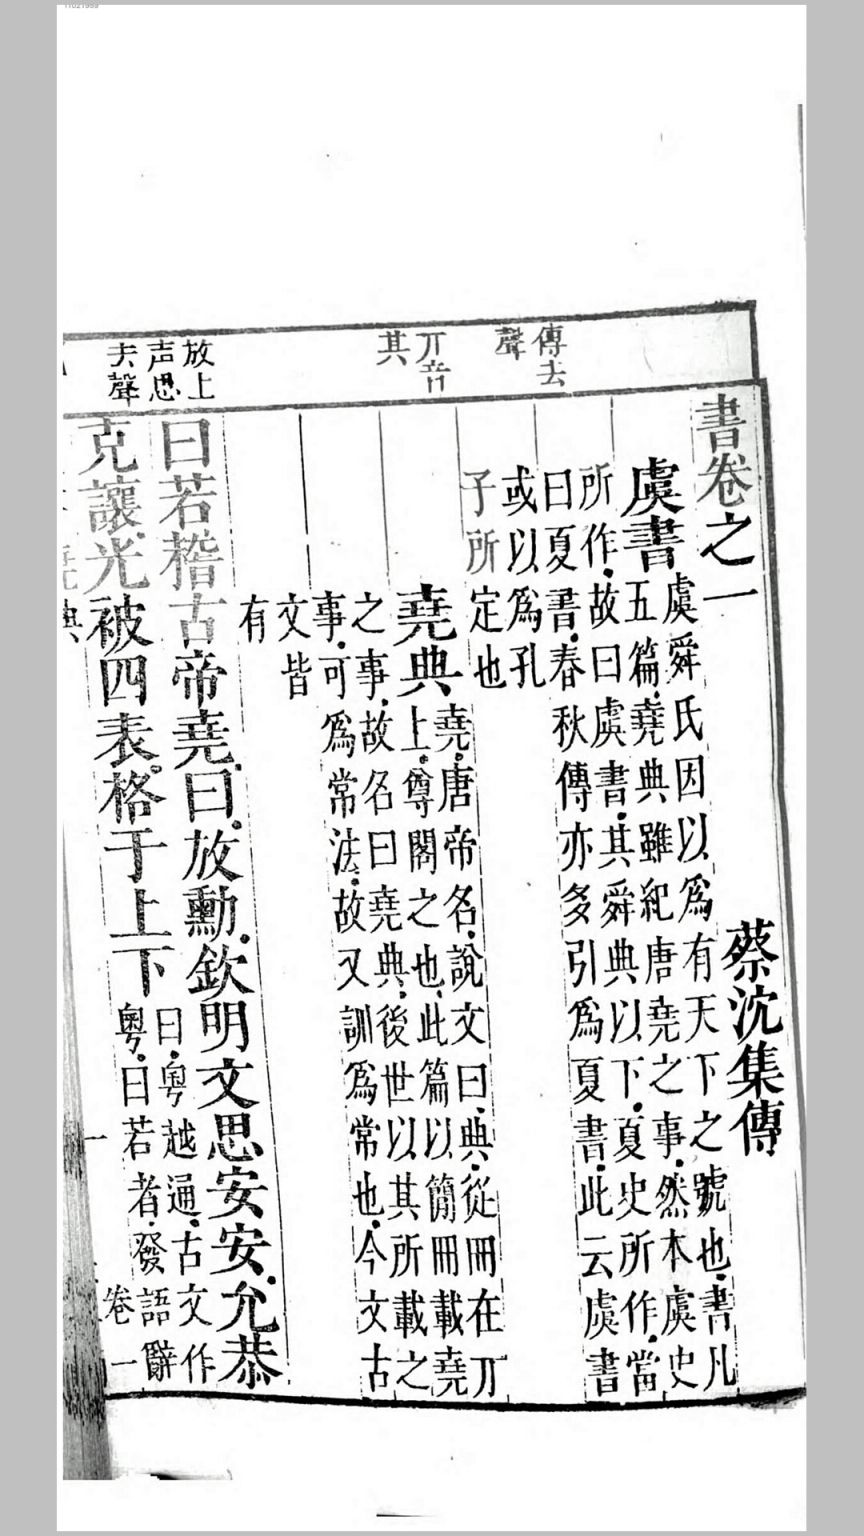 傳去
聲
丌音
其
放上
声思
去聲
書卷之一
蔡沈集傳
虞書
虞舜氏因以爲有天下之號也書凡
五篇堯典雖紀唐堯之事然本虞史
所作故曰虞書其舜典以下夏史所作當
曰夏書春秋傳亦多引爲夏書此云虞書
或以爲孔
子所定也
堯典
堯唐帝名說文曰典從冊在丌
上尊閣之也此篇以簡冊載堯
之事故名曰堯典後世以其所載之
事可爲常法故又訓爲常也今文古
文皆
有
曰若稽古帝堯曰放勳欽明文思安安允恭
克讓光被四表格于上下
曰粵越通古文作
粵曰若者發語辭
卷一
一